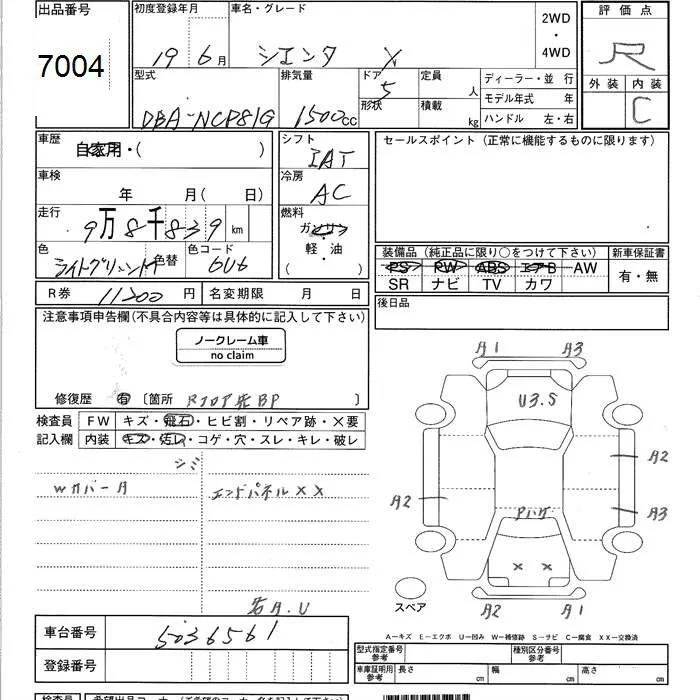 出品番号
7004
初度登録年月
19 6月
車名・グレード
シエンタ X
2WD
・
4WD
評価点
R
外装 内装
C
型式
DBA-NCP81G
排気量
1500cc
ドア
5
形状
定員
人
積載
kg
ディーラー・並 行
モデル年式 年
ハンドル 左・右
車歴
自家用・( )
車検
年 月( 日)
走行
9万8千839km
色
ライトグリーンM
色替
色コード
6U6
シフト
IAT
冷房
AC
燃料
ガソリン
・
軽・油
( )
セールスポイント (正常に機能するものに限ります)
装備品 (純正品に限り○をつけて下さい)
PS PW ABS エアB AW
SR ナビ TV カワ
新車保証書
有・無
後日品
R券 11200円
名変期限 月 日
注意事項申告欄(不具合内容等は具体的に記入して下さい)
ノークレーム車
no claim
修復歴 有 〔箇所 Rフロア先BP 〕
検査員
記入欄
FW キズ・飛石・ヒビ割・リペア跡・×要
内装 キズ・汚レ・コゲ・穴・スレ・キレ・破レ
シミ
Wカバー A
エンドパネル XX
右A.U
A1 A3
U3.5
A2
A2
A3
Pハゲ
× ×
A2 A1
スペア
A-キズ E-エクボ U-凹み W-補修跡 S-サビ C-腐食 XX-交換済
車台番号 5036561
登録番号
型式指定番号
参考
種別区分番号
参考
車庫証明用
参考
長さ cm
幅 cm
高さ cm
検査員